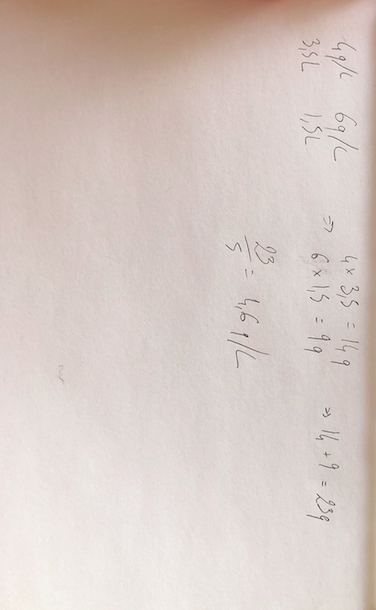 4g/L 6g/L ⇒ 4 × 3,5 = 14g ⇒ 14 + 9 = 23g
3,5L 1,5L 6 × 1,5 = 9g
23/5 = 4,6 g/L